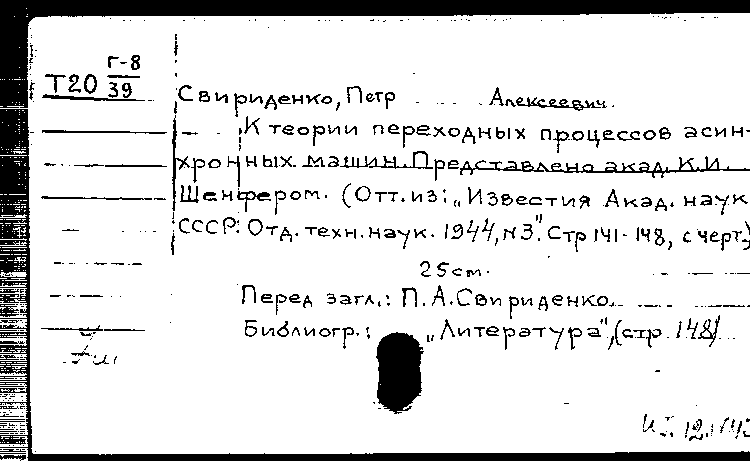 Г-8
Т20 39
Свириденко, Петр Алексеевич.
К теории переходных процессов асин-
хронных машин. Представлено акад. К.И.
Шенфером. (Отт. из: „Известия Акад. наук
СССР. Отд. техн. наук. 1944, №3". Стр 141-148, с черт.)
25 cm.
Перед загл.: П. А. Свириденко.
Библиогр.: „Литература", (стр. 148)